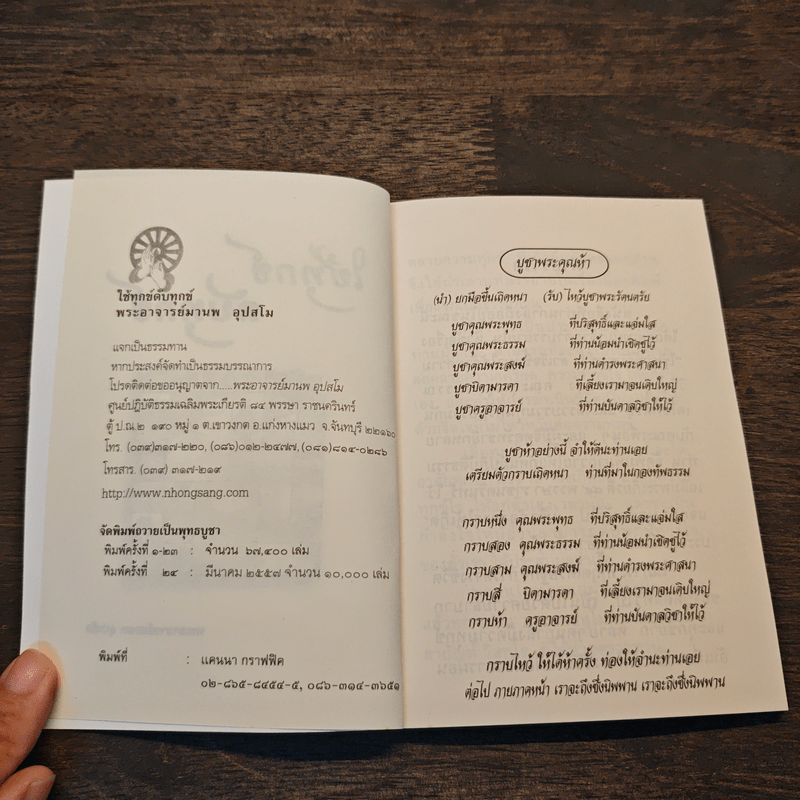 ใช้ทุกข์ดับทุกข์
พระอาจารย์มานพ อุปสโม
แจกเป็นธรรมทาน
หากประสงค์จัดทำเป็นธรรมบรรณาการ
โปรดติดต่อขออนุญาตจาก....พระอาจารย์มานพ อุปสโม
ศูนย์ปฏิบัติธรรมเฉลิมพระเกียรติ ๘๔ พรรษา ราชนครินทร์
ตู้ ป.ณ.๒ ๑๙๐ หมู่ ๑ ต.เขาวงกต อ.แก่งหางแมว จ.จันทบุรี ๒๒๑๖๐
โทร. (๐๓๙)๓๑๗-๒๒๐, (๐๘๖)๐๑๒-๒๔๗๗, (๐๘๑)๘๑๔-๐๒๘๖
โทรสาร. (๐๓๙) ๓๑๗-๒๑๙
http://www.nhongsang.com
จัดพิมพ์ถวายเป็นพุทธบูชา
พิมพ์ครั้งที่ ๑-๒๓ : จำนวน ๖๗,๔๐๐ เล่ม
พิมพ์ครั้งที่ ๒๔ : มีนาคม ๒๕๕๗ จำนวน ๑๐,๐๐๐ เล่ม
พิมพ์ที่ : แคนนา กราฟฟิค
๐๒-๘๖๕-๘๔๕๔-๕, ๐๘๖-๓๑๔-๓๖๕๑
บูชาพระคุณห้า
(นำ) ยกมือขึ้นเถิดหนา (รับ) ไหว้บูชาพระรัตนตรัย
บูชาคุณพระพุทธ ที่บริสุทธิ์และแจ่มใส
บูชาคุณพระธรรม ที่ท่านน้อมนำเชิดชูไว้
บูชาคุณพระสงฆ์ ที่ท่านดำรงพระศาสนา
บูชาบิดามารดา ที่เลี้ยงเรามาจนเติบใหญ่
บูชาครูอาจารย์ ที่ท่านบันดาลวิชาให้ไว้
บูชาห้าอย่างนี้ จำให้ดีนะท่านเอย
เตรียมตัวกราบเถิดหนา ท่านที่มาในกองทัพธรรม
กราบหนึ่ง คุณพระพุทธ ที่บริสุทธิ์และแจ่มใส
กราบสอง คุณพระธรรม ที่ท่านน้อมนำเชิดชูไว้
กราบสาม คุณพระสงฆ์ ที่ท่านดำรงพระศาสนา
กราบสี่ บิดามารดา ที่เลี้ยงเรามาจนเติบใหญ่
กราบห้า ครูอาจารย์ ที่ท่านบันดาลวิชาให้ไว้
กราบไหว้ ให้ได้ห้าครั้ง ท่องให้จำนะท่านเอย
ต่อไป ภายภาคหน้า เราจะถึงซึ่งนิพพาน เราจะถึงซึ่งนิพพาน